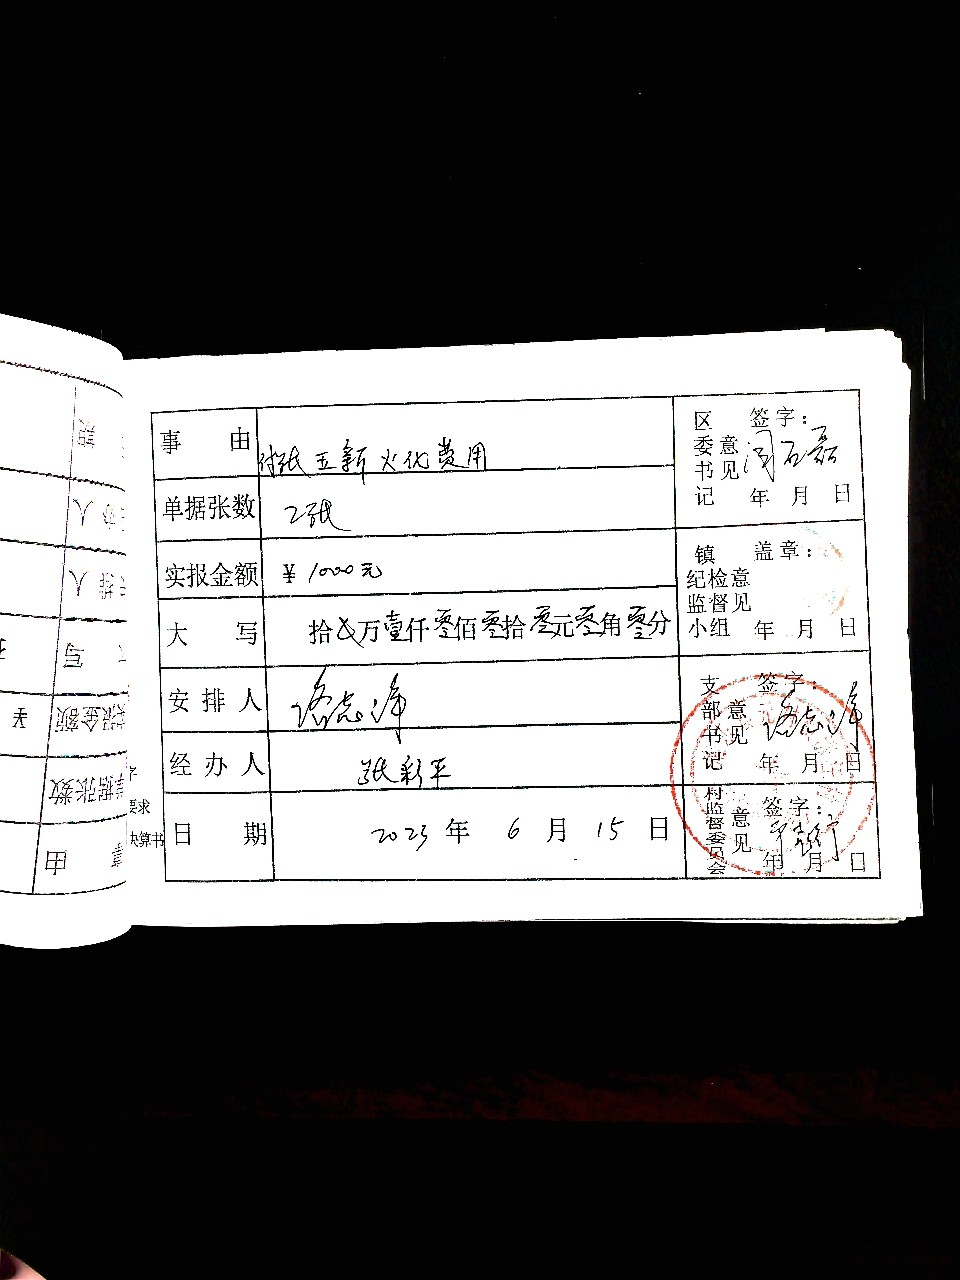 事 由 付张五新火化费用
单据张数 2张
实报金额 ¥1000元
大 写 拾 万壹仟零佰零拾零元零角零分
安排人
经办人 张彩平
日 期 2023年 6月 15日
区委书记意见 签字：
年 月 日
镇纪检监督小组意见 盖章：
年 月 日
支部书记意见 签字：
年 月 日
村监督委员会意见 签字：
年 月 日
要求
决算书
事 由
单据张数
实报金额
写
排人
办人